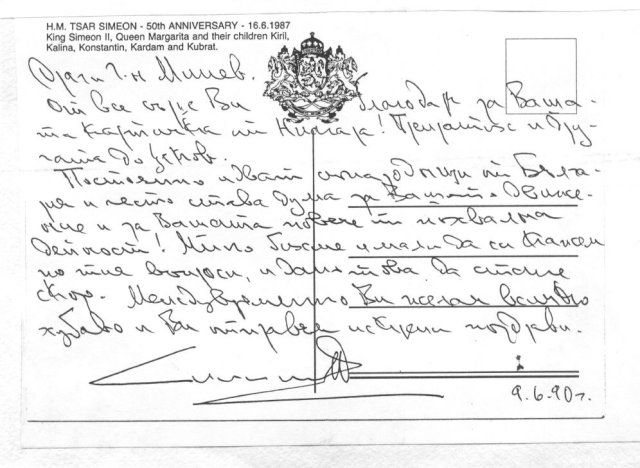 H.M. TSAR SIMEON - 50th ANNIVERSARY - 16.6.1987
King Simeon II, Queen Margarita and their children Kiril,
Kalina, Konstantin, Kardam and Kubrat.
Драги Г-н Мишев.
От все сърце Ви благодаря за Ваша-
та картичка от Ниагара! и дру-
гата до
Постоянно идват сънародници от Бълга-
рия и често става дума за Вашето движе-
ние и за Вашата повече от похвална
дейност! Мило бихме имали да си кажем
по тия въпроси, и дано това да стане
скоро. Междувременно Ви желая всичко
хубаво и Ви отправям искрени поздрави.
9.6.90г.